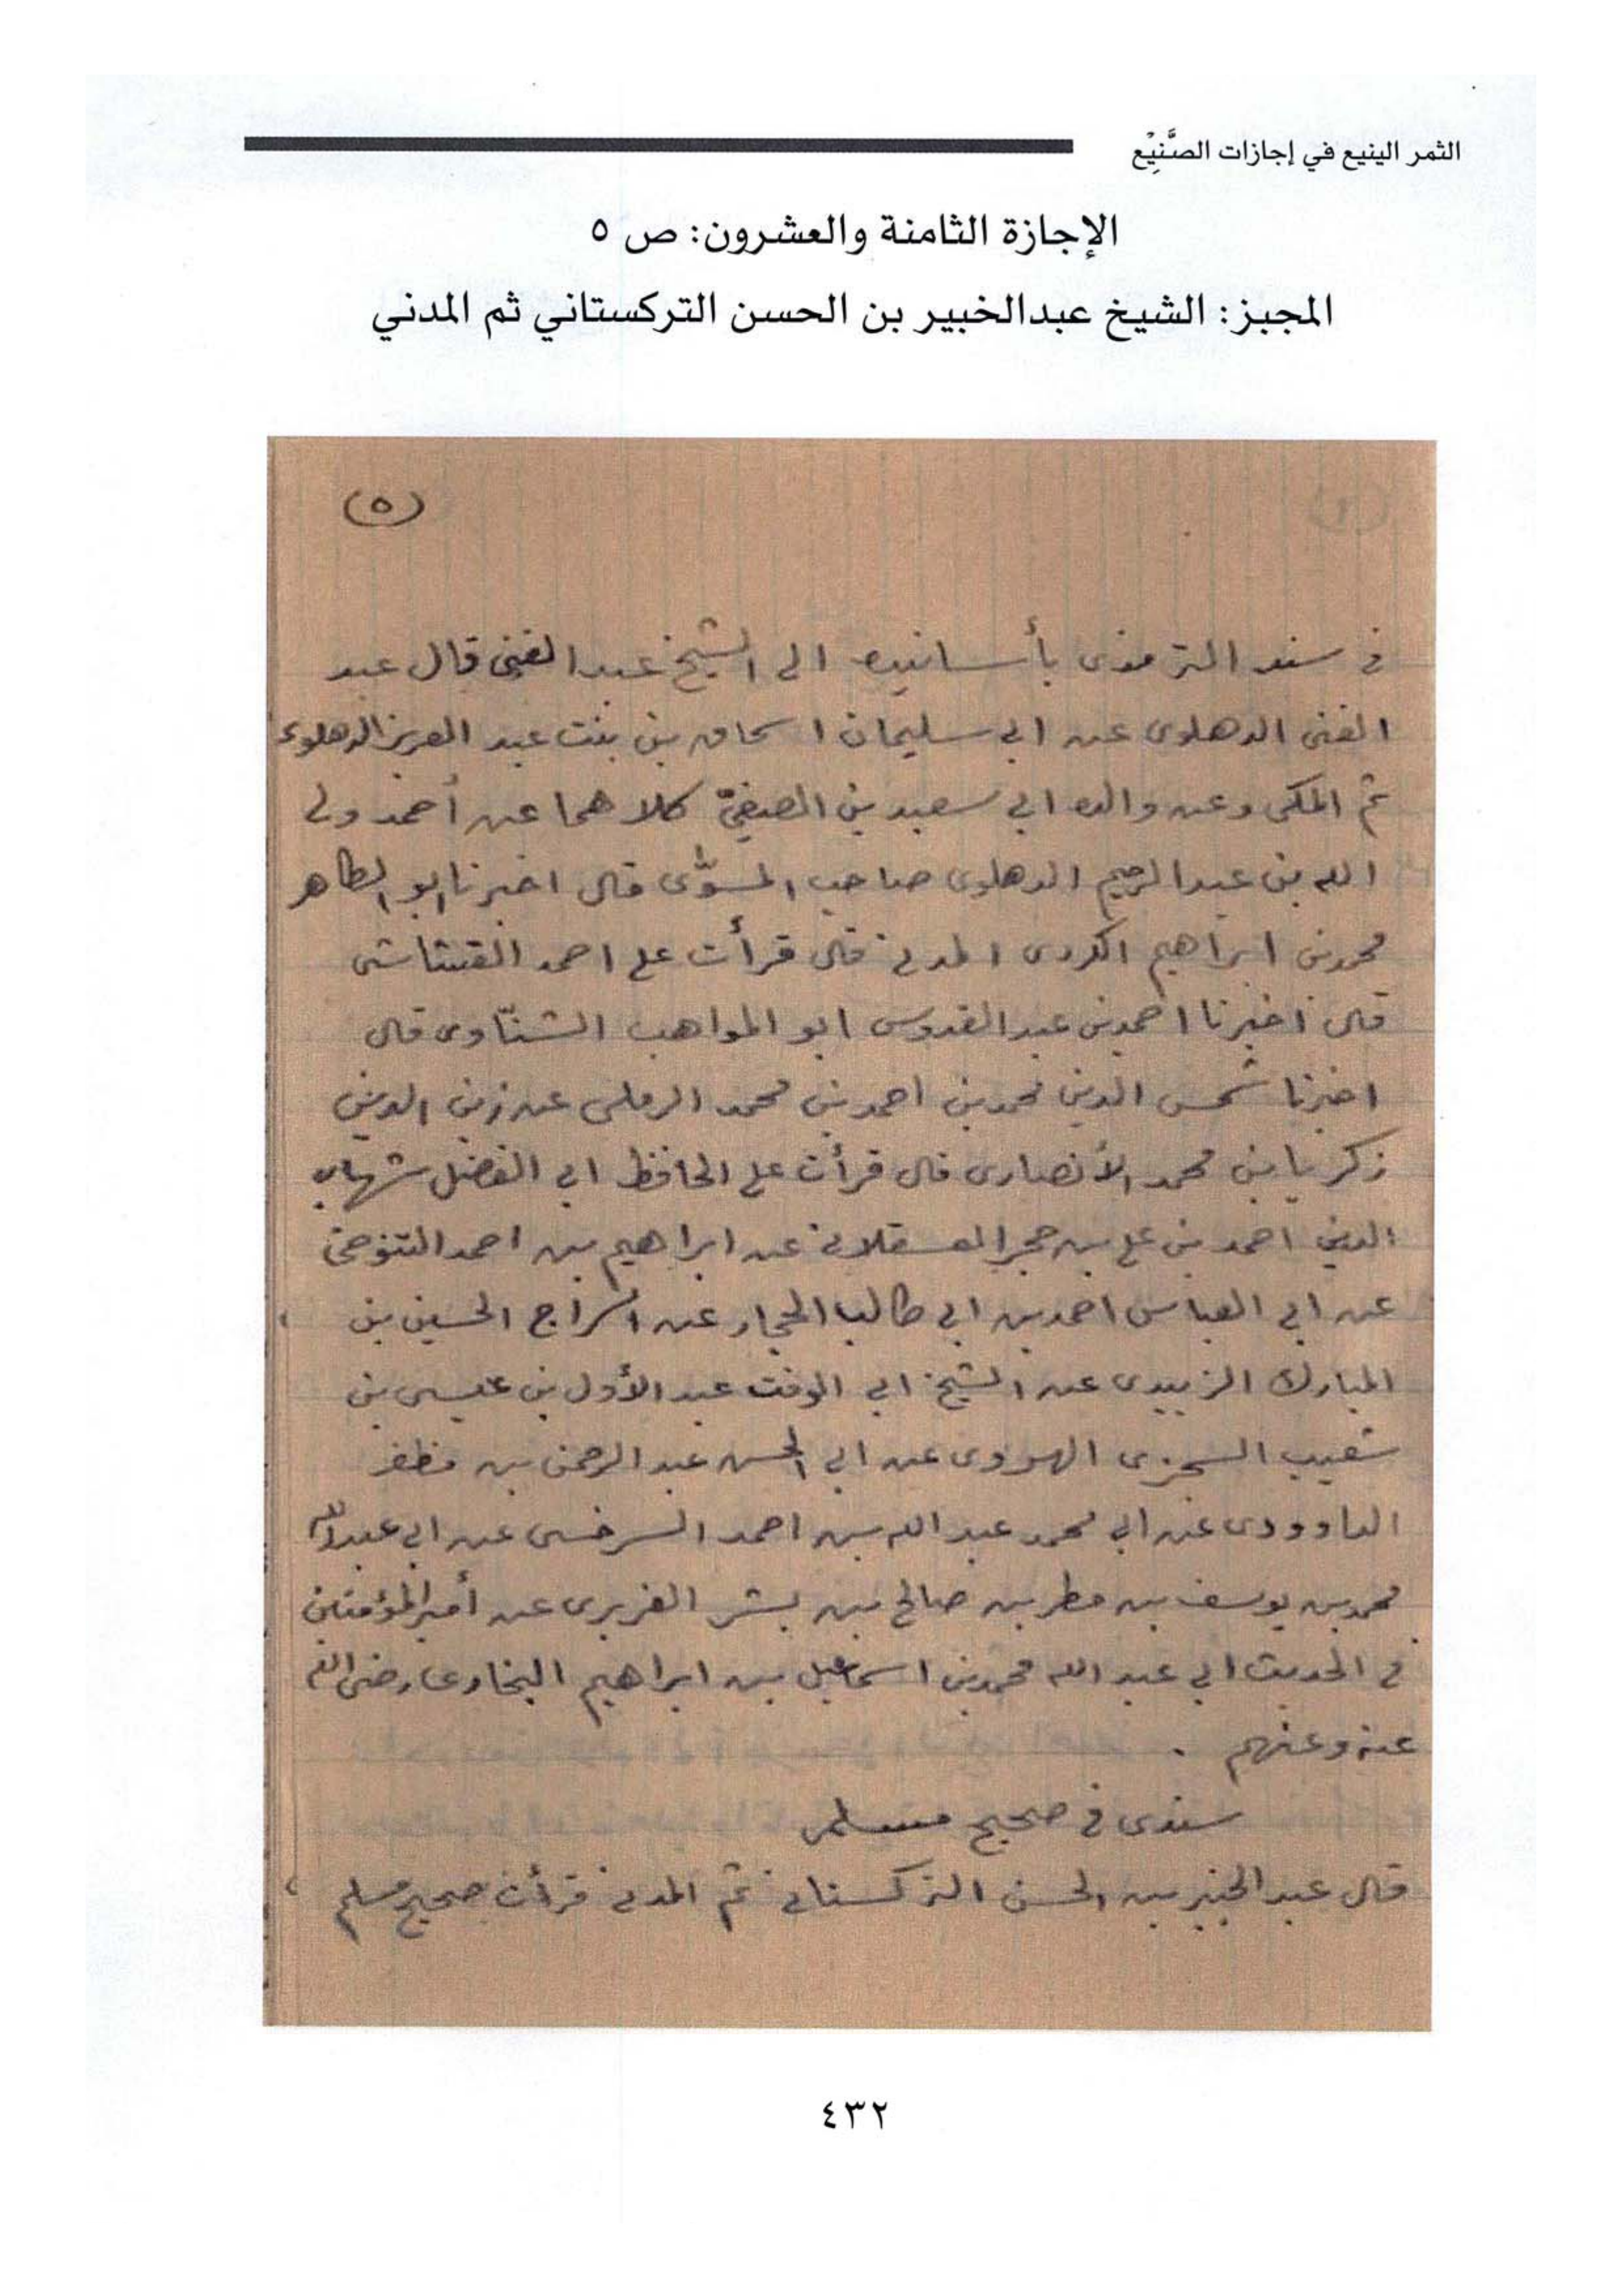 الثمر الينيع في إجازات الصَّنِيْع
الإجازة الثامنة والعشرون: ص ٥
المجبز: الشيخ عبدالخبير بن الحسن التركستاني ثم المدني
(٥)
في سند الترمذى بأسانيده الى الشيخ عبد الغنى قال عبد
الغنى الدهلوى عن ابي سليمان اسحاق بن بنت عبد العزيز الدهلوى
ثم المكى وعن والده ابي سعيد بن الصفيّ كلاهما عن أحمد ولي
الله بن عبد الرحيم الدهلوى صاحب المسوّى قال اخبرنا ابو الطاهر
محمد بن ابراهيم الكردى المدني قال قرأت على احمد القشاشى
قال اخبرنا احمد بن عبد القدوس ابو المواهب الشنّاوى قال
اخبرنا شمس الدين محمد بن احمد بن محمد الرملى عن زين الدين
زكريا بن محمد الأنصارى قال قرأت على الحافظ ابي الفضل شهاب
الدين احمد بن على بن حجر العسقلاني عن ابراهيم بن احمد التنوخى
عن ابي العباس احمد بن ابي طالب الحجار عن السراج الحسين بن
المبارك الزبيدى عن الشيخ ابي الوقت عبد الأول بن عيسى بن
شعيب السجزى الهروى عن ابي الحسن عبد الرحمن بن مظفر
الداوودى عن ابي محمد عبد الله بن احمد السرخسى عن ابي عبد الله
محمد بن يوسف بن مطر بن صالح بن بشر الفربرى عن أمير المؤمنين
في الحديث ابي عبد الله محمد بن اسماعيل بن ابراهيم البخارى رضى الله
عنه وعنهم .
سندى في صحيح مسلم
قال عبد الخبير بن الحسن التركستاني ثم المدني قرأت صحيح مسلم
٤٣٢